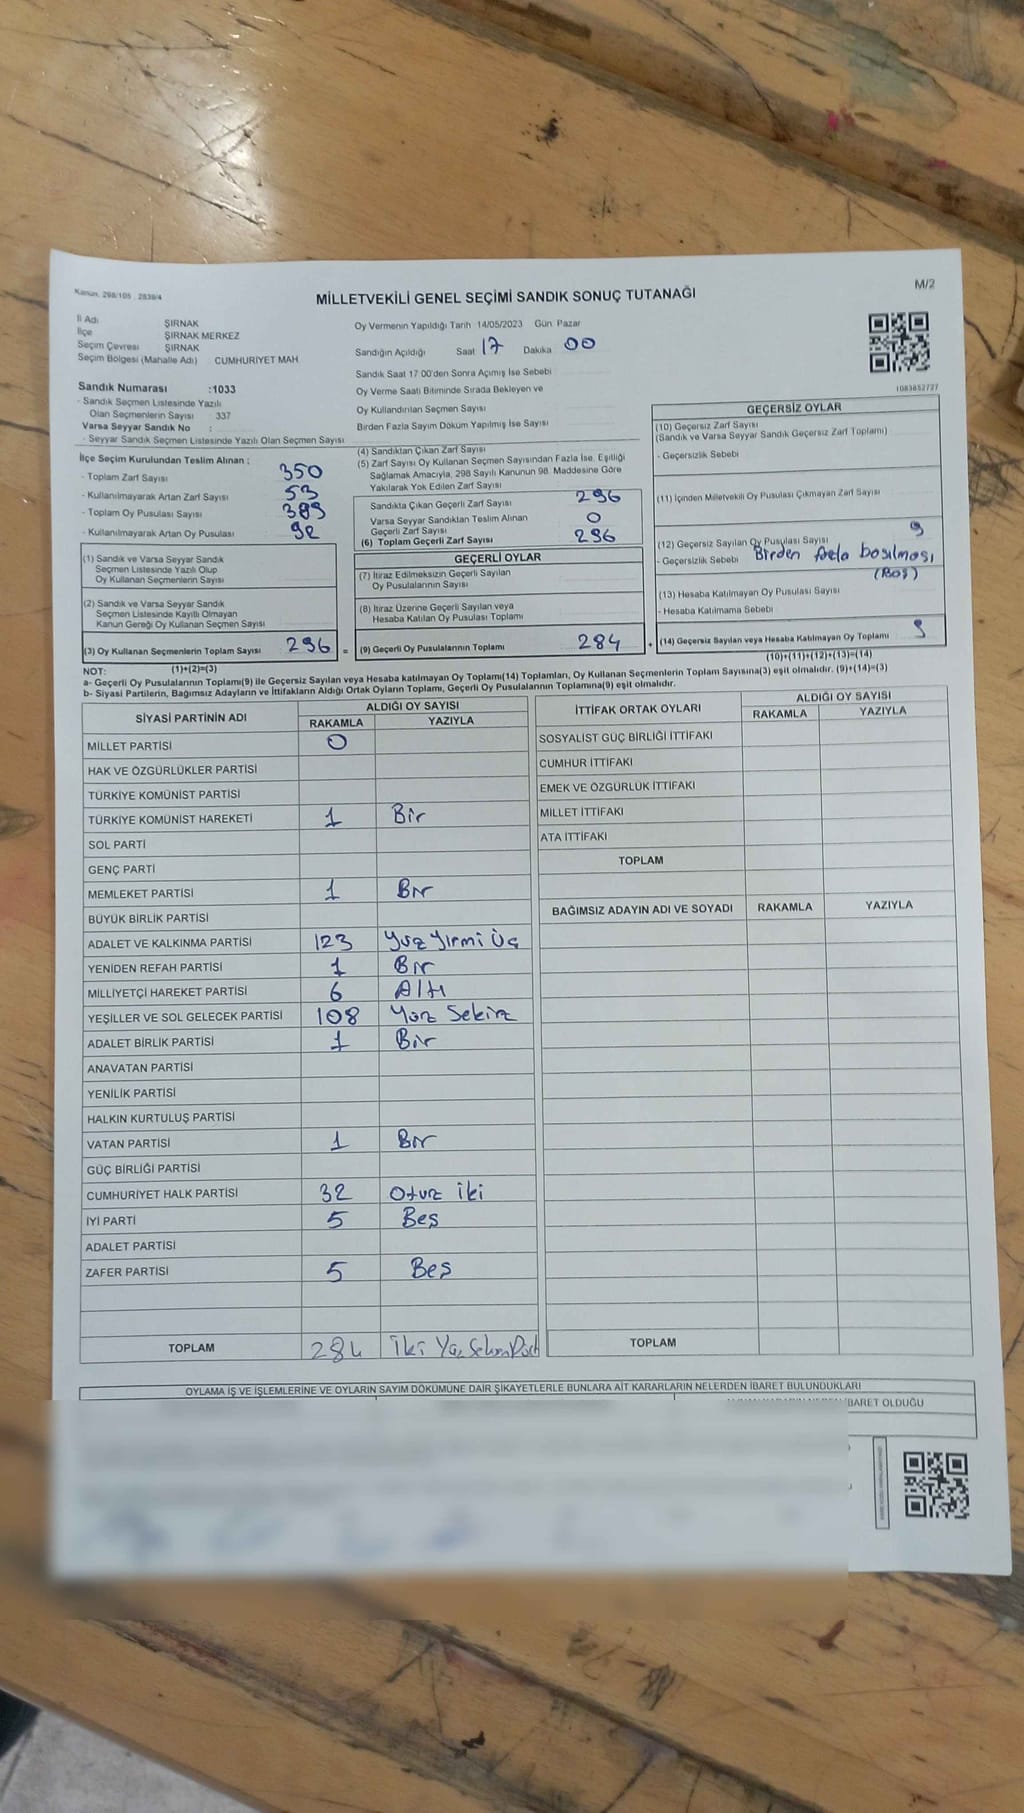 Kanun: 298/105 , 2839/4
MİLLETVEKİLİ GENEL SEÇİMİ SANDIK SONUÇ TUTANAĞI
M/2
İl Adı ŞIRNAK
İlçe ŞIRNAK MERKEZ
Seçim Çevresi ŞIRNAK
Seçim Bölgesi (Mahalle Adı) CUMHURİYET MAH
Sandık Numarası :1033
- Sandık Seçmen Listesinde Yazılı
Olan Seçmenlerin Sayısı 337
Varsa Seyyar Sandık No :
- Seyyar Sandık Seçmen Listesinde Yazılı Olan Seçmen Sayısı
Oy Vermenin Yapıldığı Tarih 14/05/2023 Gün Pazar
Sandığın Açıldığı Saat 17 Dakika 00
Sandık Saat 17:00'den Sonra Açımış İse Sebebi
Oy Verme Saati Bitiminde Sırada Bekleyen ve
Oy Kullandırılan Seçmen Sayısı
Birden Fazla Sayım Döküm Yapılmış İse Sayısı
1083852727
İlçe Seçim Kurulundan Teslim Alınan :
- Toplam Zarf Sayısı 350
- Kullanılmayarak Artan Zarf Sayısı 53
- Toplam Oy Pusulası Sayısı 389
- Kullanılmayarak Artan Oy Pusulası 92
(1) Sandık ve Varsa Seyyar Sandık
Seçmen Listesinde Yazılı Olup
Oy Kullanan Seçmenlerin Sayısı
(2) Sandık ve Varsa Seyyar Sandık
Seçmen Listesinde Kayıtlı Olmayan
Kanun Gereği Oy Kullanan Seçmen Sayısı
(3) Oy Kullanan Seçmenlerin Toplam Sayısı 296 =
(1)+(2)=(3)
(4) Sandıktan Çıkan Zarf Sayısı
(5) Zarf Sayısı Oy Kullanan Seçmen Sayısından Fazla İse, Eşitliği
Sağlamak Amacıyla, 298 Sayılı Kanunun 98. Maddesine Göre
Yakılarak Yok Edilen Zarf Sayısı
Sandıkta Çıkan Geçerli Zarf Sayısı 296
Varsa Seyyar Sandıktan Teslim Alınan
Geçerli Zarf Sayısı 0
(6) Toplam Geçerli Zarf Sayısı 296
GEÇERLİ OYLAR
(7) İtiraz Edilmeksizin Geçerli Sayılan
Oy Pusulalarının Sayısı
(8) İtiraz Üzerine Geçerli Sayılan veya
Hesaba Katılan Oy Pusulası Toplamı
(9) Geçerli Oy Pusulalarının Toplamı 284 +
GEÇERSİZ OYLAR
(10) Geçersiz Zarf Sayısı
(Sandık ve Varsa Seyyar Sandık Geçersiz Zarf Toplamı)
- Geçersizlik Sebebi
(11) İçinden Milletvekili Oy Pusulası Çıkmayan Zarf Sayısı
(12) Geçersiz Sayılan Oy Pusulası Sayısı 9
- Geçersizlik Sebebi Birden fazla basılması
(Boş)
(13) Hesaba Katılmayan Oy Pusulası Sayısı
- Hesaba Katılmama Sebebi
(14) Geçersiz Sayılan veya Hesaba Katılmayan Oy Toplamı 9
(10)+(11)+(12)+(13)=(14)
NOT:
a- Geçerli Oy Pusulalarının Toplamı(9) ile Geçersiz Sayılan veya Hesaba katılmayan Oy Toplamı(14) Toplamları, Oy Kullanan Seçmenlerin Toplam Sayısına(3) eşit olmalıdır. (9)+(14)=(3)
b- Siyasi Partilerin, Bağımsız Adayların ve İttifakların Aldığı Ortak Oyların Toplamı, Geçerli Oy Pusulalarının Toplamına(9) eşit olmalıdır.
SİYASİ PARTİNİN ADI ALDIĞI OY SAYISI
RAKAMLA YAZIYLA
MİLLET PARTİSİ 0
HAK VE ÖZGÜRLÜKLER PARTİSİ
TÜRKİYE KOMÜNİST PARTİSİ
TÜRKİYE KOMÜNİST HAREKETİ 1 Bir
SOL PARTİ
GENÇ PARTİ
MEMLEKET PARTİSİ 1 Bir
BÜYÜK BİRLİK PARTİSİ
ADALET VE KALKINMA PARTİSİ 123 Yüz Yirmi Üç
YENİDEN REFAH PARTİSİ 1 Bir
MİLLİYETÇİ HAREKET PARTİSİ 6 Altı
YEŞİLLER VE SOL GELECEK PARTİSİ 108 Yüz Sekiz
ADALET BİRLİK PARTİSİ 1 Bir
ANAVATAN PARTİSİ
YENİLİK PARTİSİ
HALKIN KURTULUŞ PARTİSİ
VATAN PARTİSİ 1 Bir
GÜÇ BİRLİĞİ PARTİSİ
CUMHURİYET HALK PARTİSİ 32 Otuz iki
İYİ PARTİ 5 Beş
ADALET PARTİSİ
ZAFER PARTİSİ 5 Beş
TOPLAM 284 İki Yüz Seksen Dört
İTTİFAK ORTAK OYLARI ALDIĞI OY SAYISI
RAKAMLA YAZIYLA
SOSYALİST GÜÇ BİRLİĞİ İTTİFAKI
CUMHUR İTTİFAKI
EMEK VE ÖZGÜRLÜK İTTİFAKI
MİLLET İTTİFAKI
ATA İTTİFAKI
TOPLAM
BAĞIMSIZ ADAYIN ADI VE SOYADI RAKAMLA YAZIYLA
TOPLAM
OYLAMA İŞ VE İŞLEMLERİNE VE OYLARIN SAYIM DÖKÜMÜNE DAİR ŞİKAYETLERLE BUNLARA AİT KARARLARIN NELERDEN İBARET BULUNDUKLARI
İBARET OLDUĞU